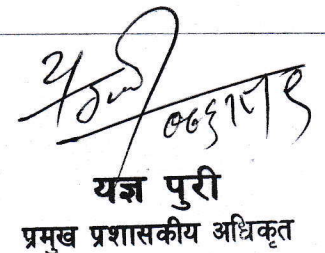 यज्ञ पुरी
प्रमुख प्रशासकीय अधिकृत